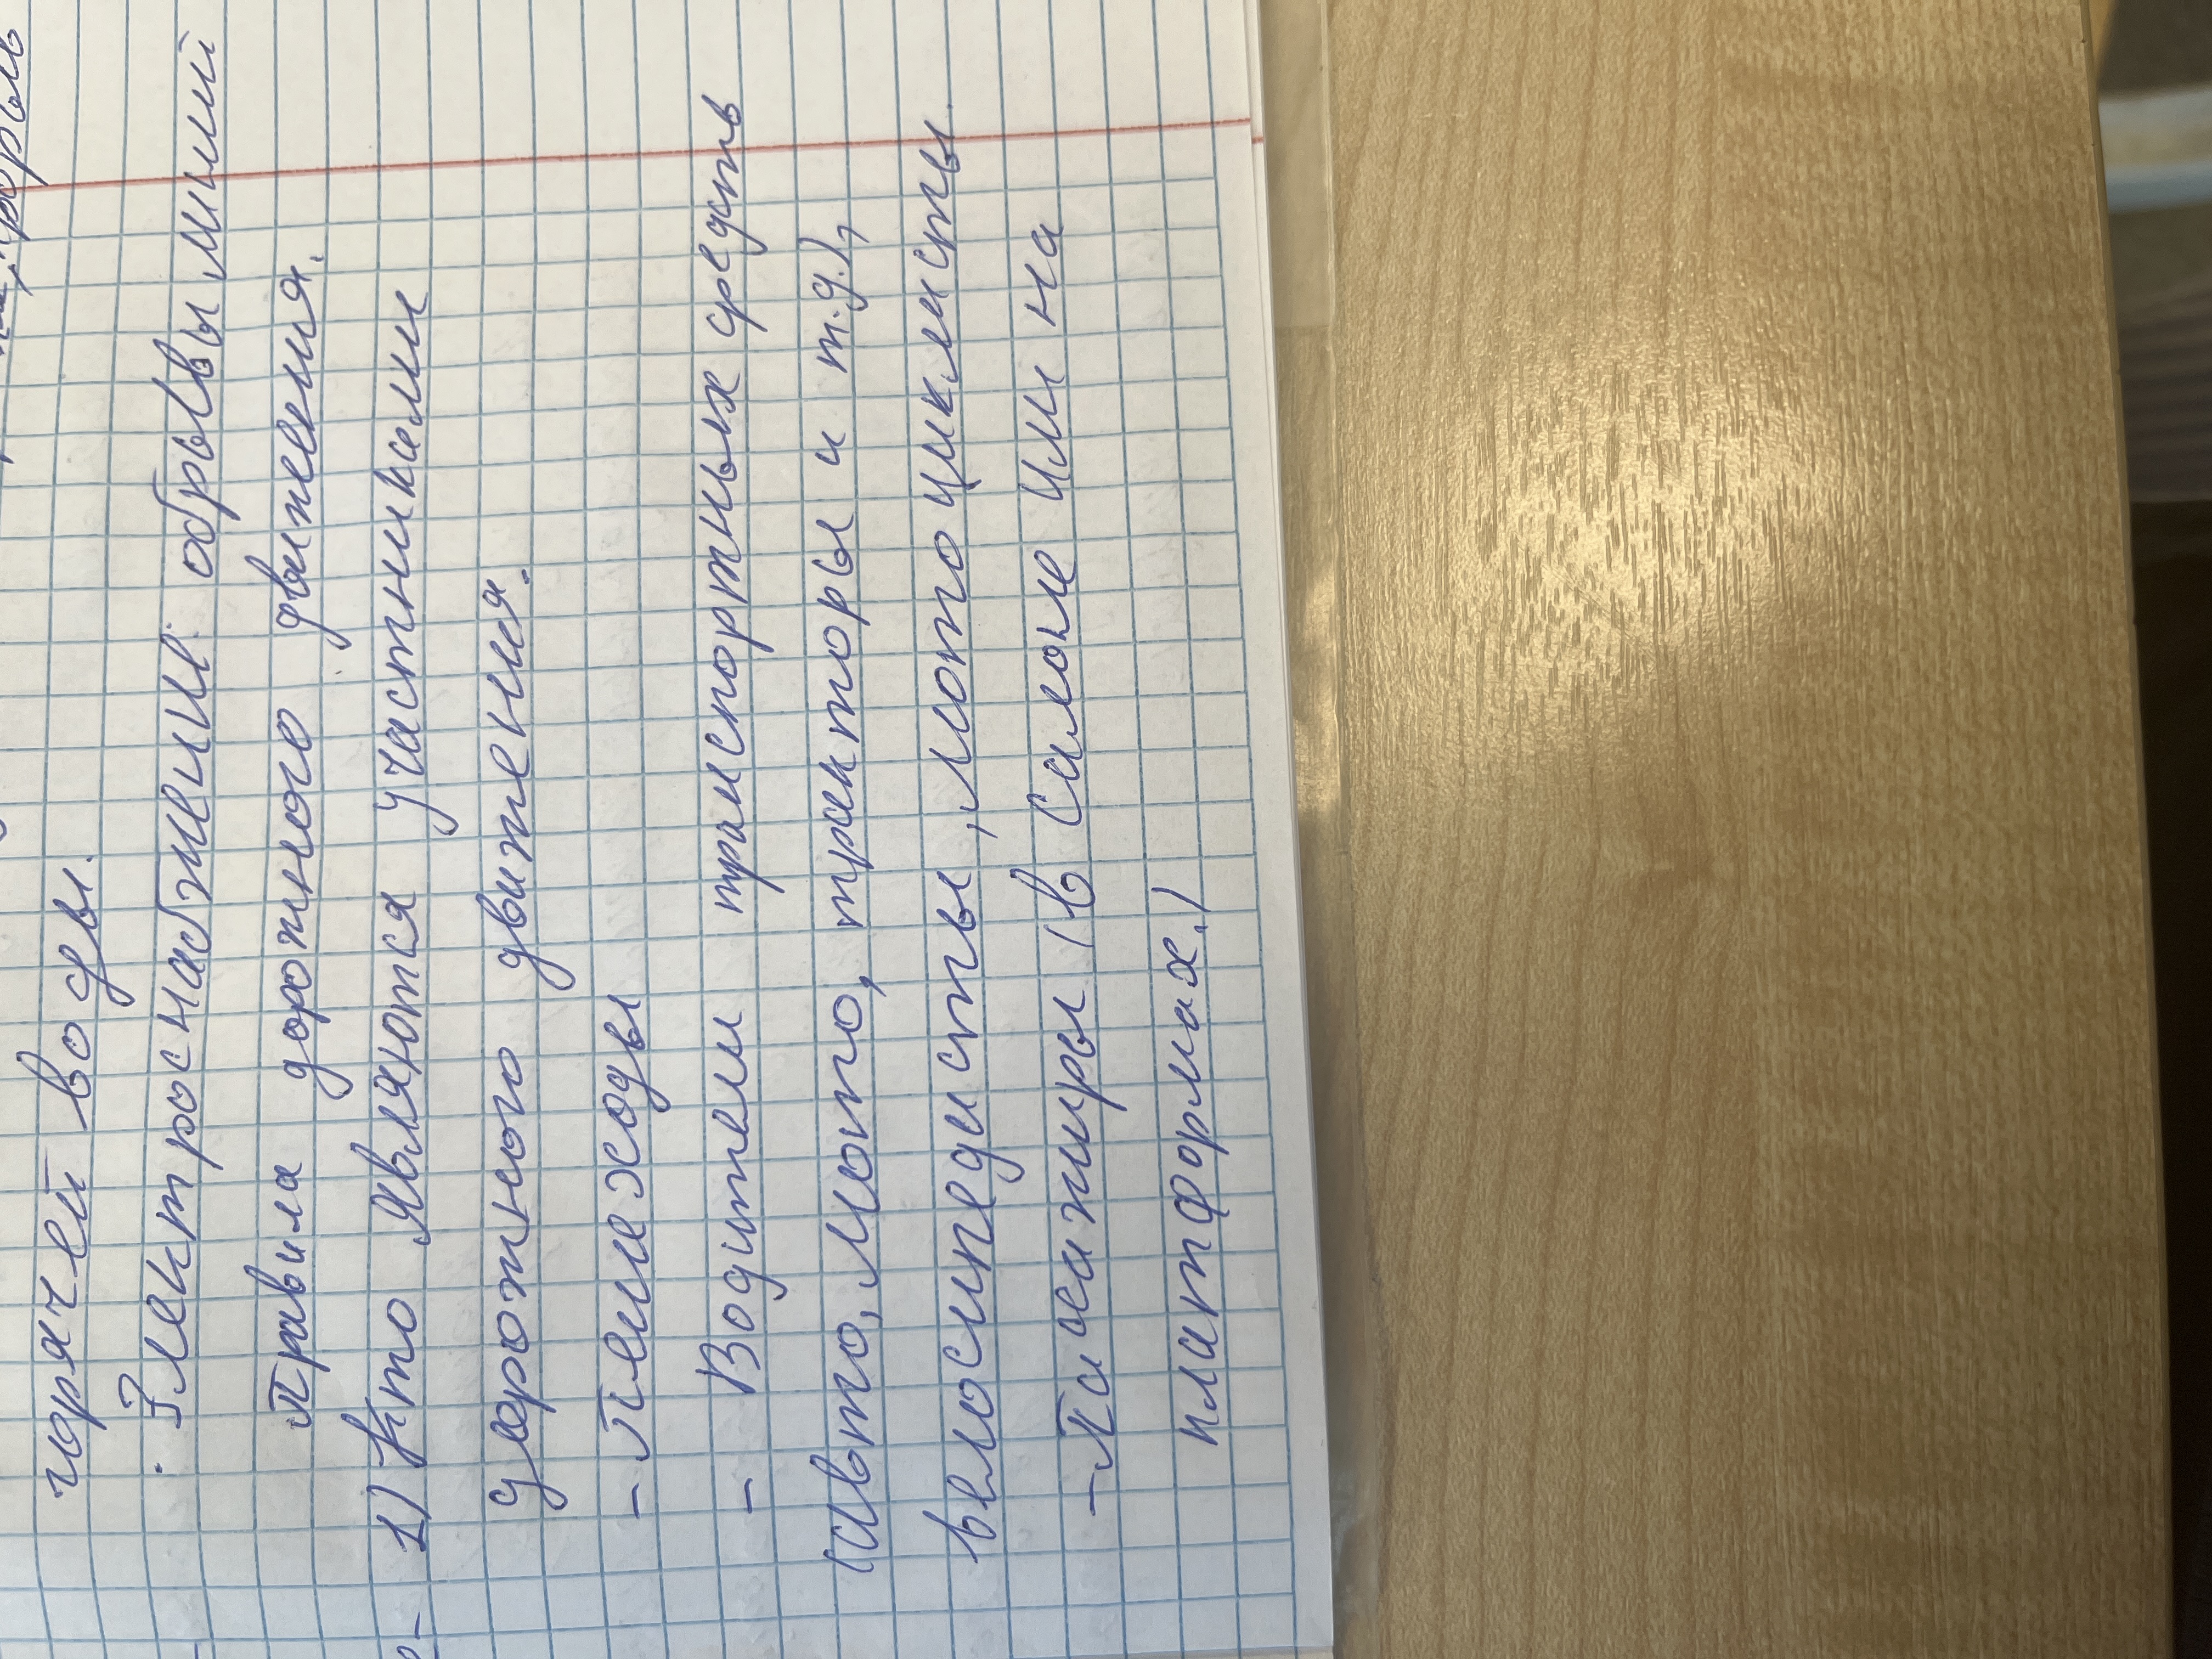 горячей воды.
· Электроснабжении: обрывы линий
Правила дорожного движения.
1) Кто является участниками
дорожного движения.
- Пешеходы
- Водители транспортных средств
(авто, мото, тракторы и т.д.),
велосипедисты, мотоциклисты.
- Пасажиры (в салоне или на
платформах.)